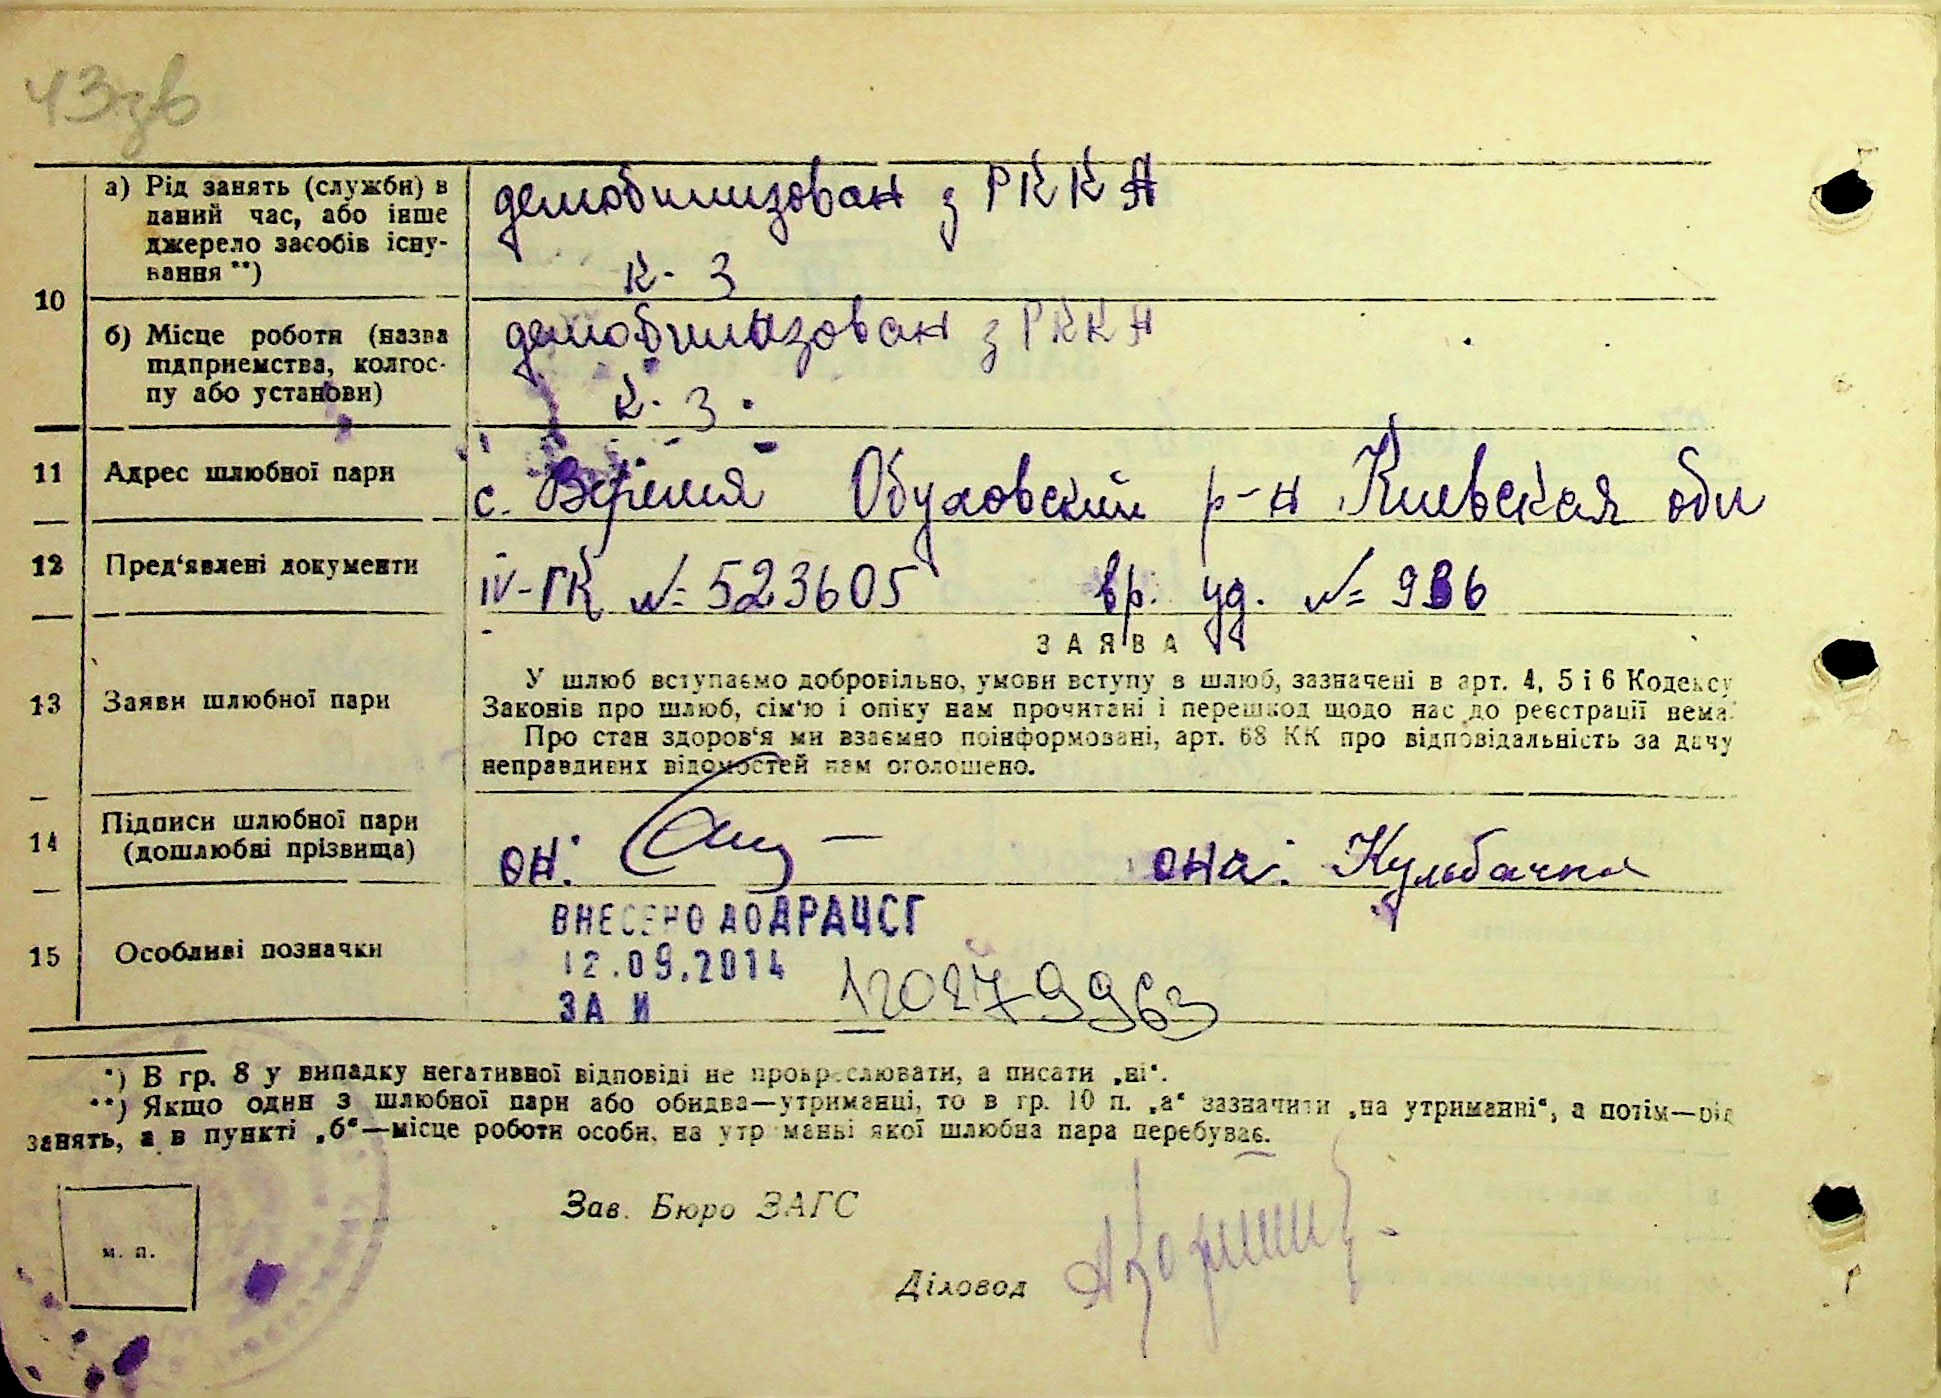 43зв
а) Рід занять (служби) в
даний час, або інше
джерело засобів існу-
вання **)
демобилизован з РККА
к-з
10
б) Місце роботи (назва
підприемства, колгос-
пу або установи)
демобилизован з РККА
к-з.
11 Адрес шлюбної пари
с. Веремя Обуховский р-н Киевская обл
12 Пред'явлені документи
IV-ГК № 523605 вр. уд. № 936
13 Заяви шлюбної пари
ЗАЯВА
У шлюб вступаємо добровільно, умови вступу в шлюб, зазначені в арт. 4, 5 і 6 Кодексу
Законів про шлюб, сім'ю і опіку нам прочитані і перешкод щодо нас до реєстрації нема.
Про стан здоров'я ми взаємно поінформовані, арт. 68 КК про відповідальність за дачу
неправдивих відомостей нам оголошено.
14 Підписи шлюбної пари
(дошлюбні прізвища)
он: она: Кульбачна
15 Особливі позначки
ВНЕСЕНО ДО ДРАЦСГ
12.09.2014
ЗА И 120279963
*) В гр. 8 у випадку негативної відповіді не прокреслювати, а писати „ні“.
**) Якщо один з шлюбної пари або обидва—утриманці, то в гр. 10 п. „а“ зазначити „на утриманні“, а потім—рід
занять, а в пункті „б“—місце роботи особи, на утриманні якої шлюбна пара перебуває.
м. п.
Зав. Бюро ЗАГС
Діловод